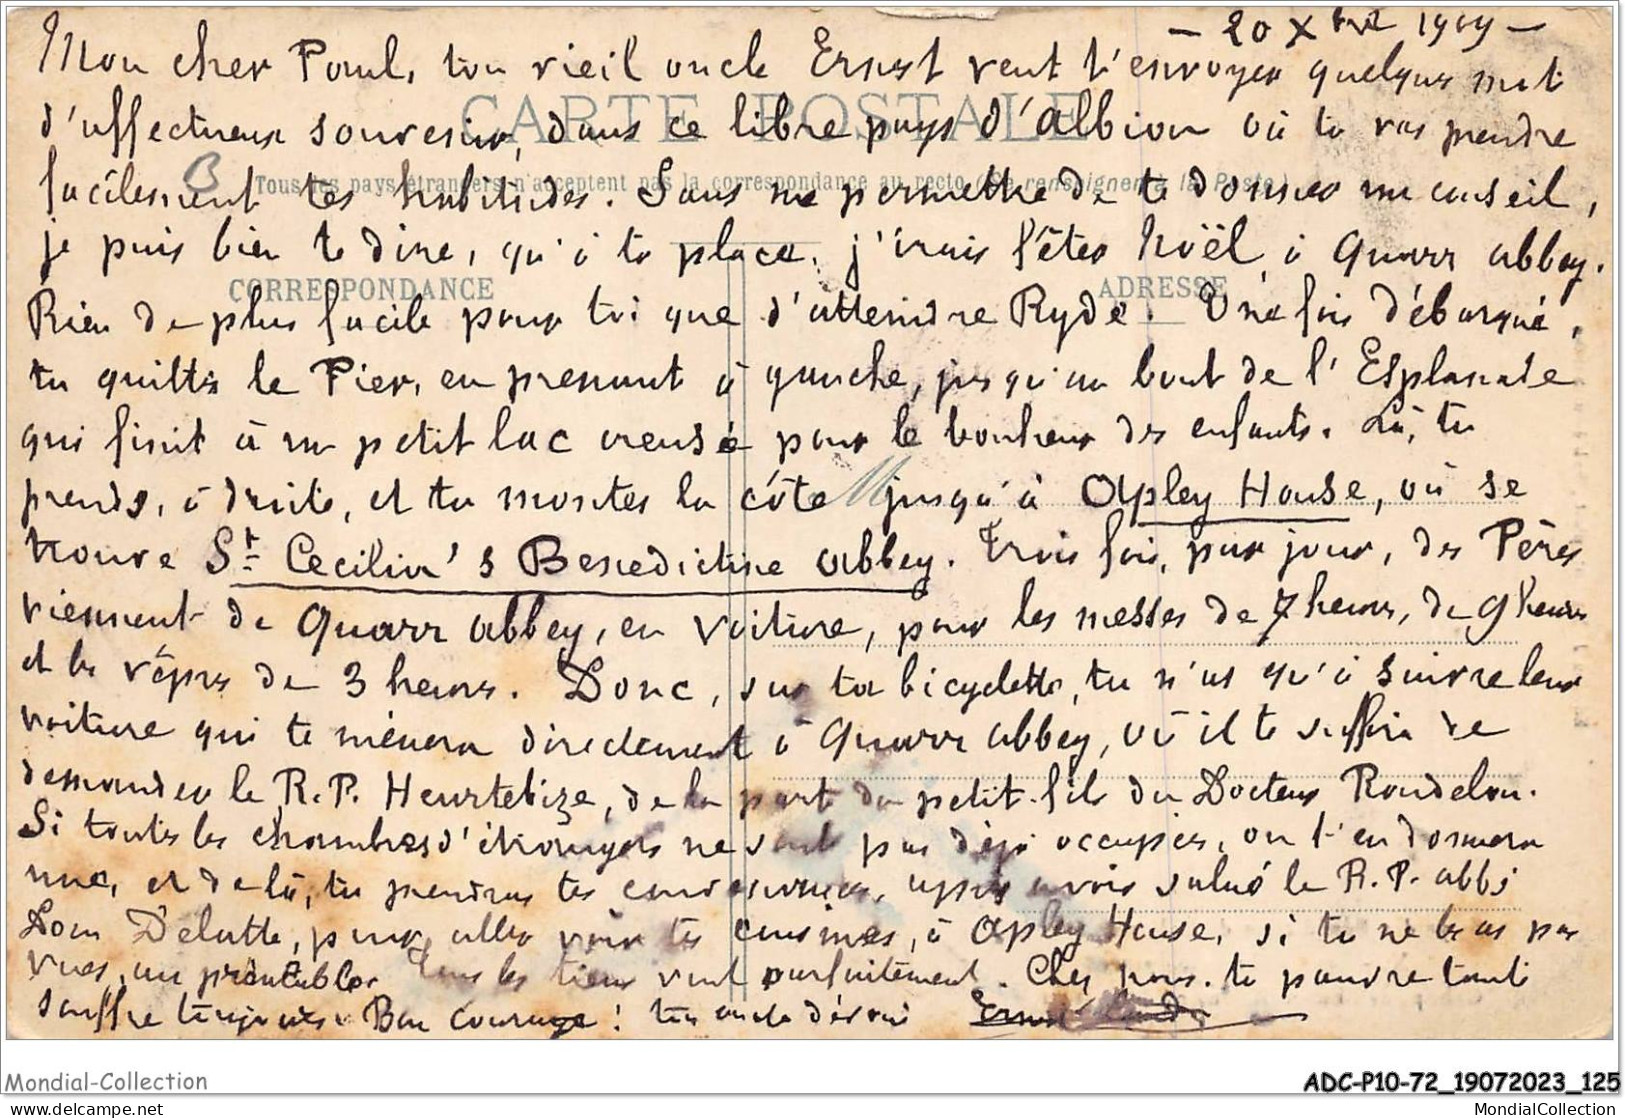 - 20 Xbre 1919 -
Mon cher Paul, ton vieil oncle Ernest veut t'envoyer quelques mots
CARTE POSTALE
d'affectueux souvenir, dans ce libre pays d'Albion où tu vas prendre
B
Tous les pays étrangers n'acceptent pas la correspondance au recto (Se renseigner à la Poste)
facilement tes habitudes. Sans me permettre de te donner un conseil,
je puis bien te dire, qu'à ta place, j'irais fêter Noël, à Quarr abbey.
CORRESPONDANCE
ADRESSE
Rien de plus facile pour toi que d'atteindre Ryde. Une fois débarqué,
tu quittes le Pier, en prenant à gauche, jusqu'au bout de l'Esplanade
qui finit à un petit lac creusé pour le bonheur des enfants. Là, tu
prends, à droite, et tu montes la côte jusqu'à Apley House, où se
trouve St Cecilia's Benedictine abbey. Trois fois, par jour, des Pères
viennent de Quarr abbey, en voiture, pour les messes de 7 heures, de 9 heures
et les vêpres de 3 heures. Donc, sur ta bicyclette, tu n'as qu'à suivre leur
voiture qui te mènera directement à Quarr abbey, où il te suffira de
demander le R.P. Heurtebize, de la part du petit-fils du Docteur Rondelou.
Si toutes les chambres d'étrangers ne sont pas déjà occupées, on t'en donnera
une, et de là, tu prendras tes après avoir salué le R.P. abbé
Dom Delatte, pour aller voir tes cousines, à Apley House, si tu ne les as pas
vues, au préalable. Tous les tiens vont parfaitement. Chez nous, ta pauvre tante
souffre toujours. Bon courage ! ton oncle dévoué Ernest
Mondial-Collection
ADC-P10-72_19072023_125
www.delcampe.net
MondialCollection